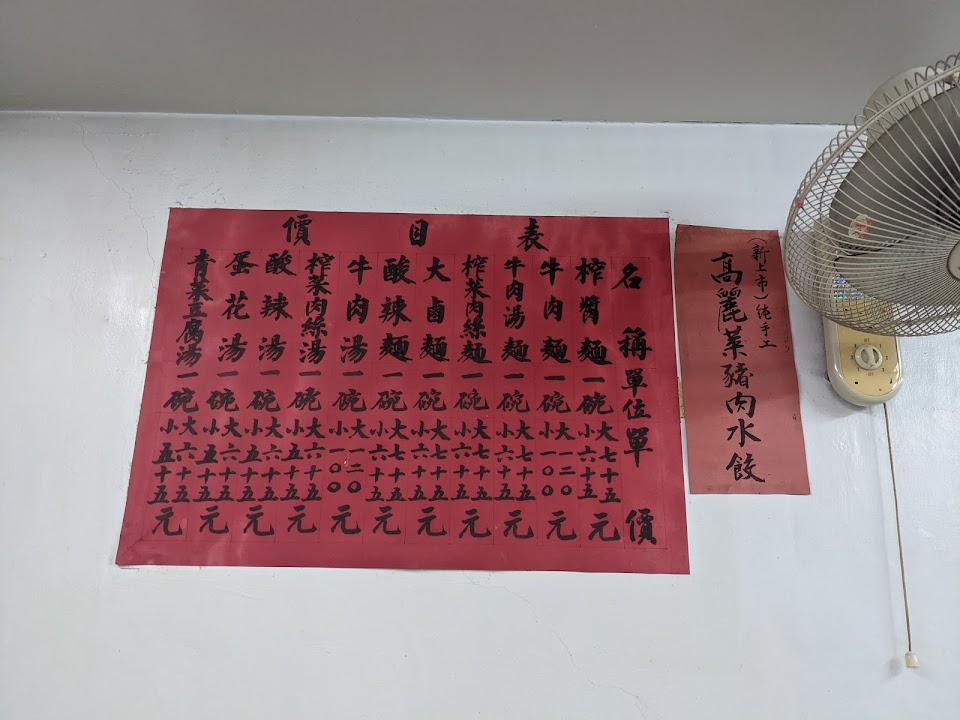 價目表
名稱單位單價
榨醬麵一碗大七十五小六十五元
牛肉麵一碗大一二〇小一〇〇元
牛肉湯麵一碗大七十五小六十五元
榨菜肉絲麵一碗大七十五小六十五元
大鹵麵一碗大七十五小六十五元
酸辣麵一碗大七十五小六十五元
牛肉湯一碗大一二〇小一〇〇元
榨菜肉絲湯一碗大六十五小五十五元
酸辣湯一碗大六十五小五十五元
蛋花湯一碗大六十五小五十五元
青菜豆腐湯一碗大六十五小五十五元
（新上市）純手工
高麗菜豬肉水餃